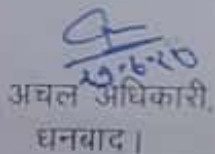 27-6-20
अचल अधिकारी,
धनबाद।